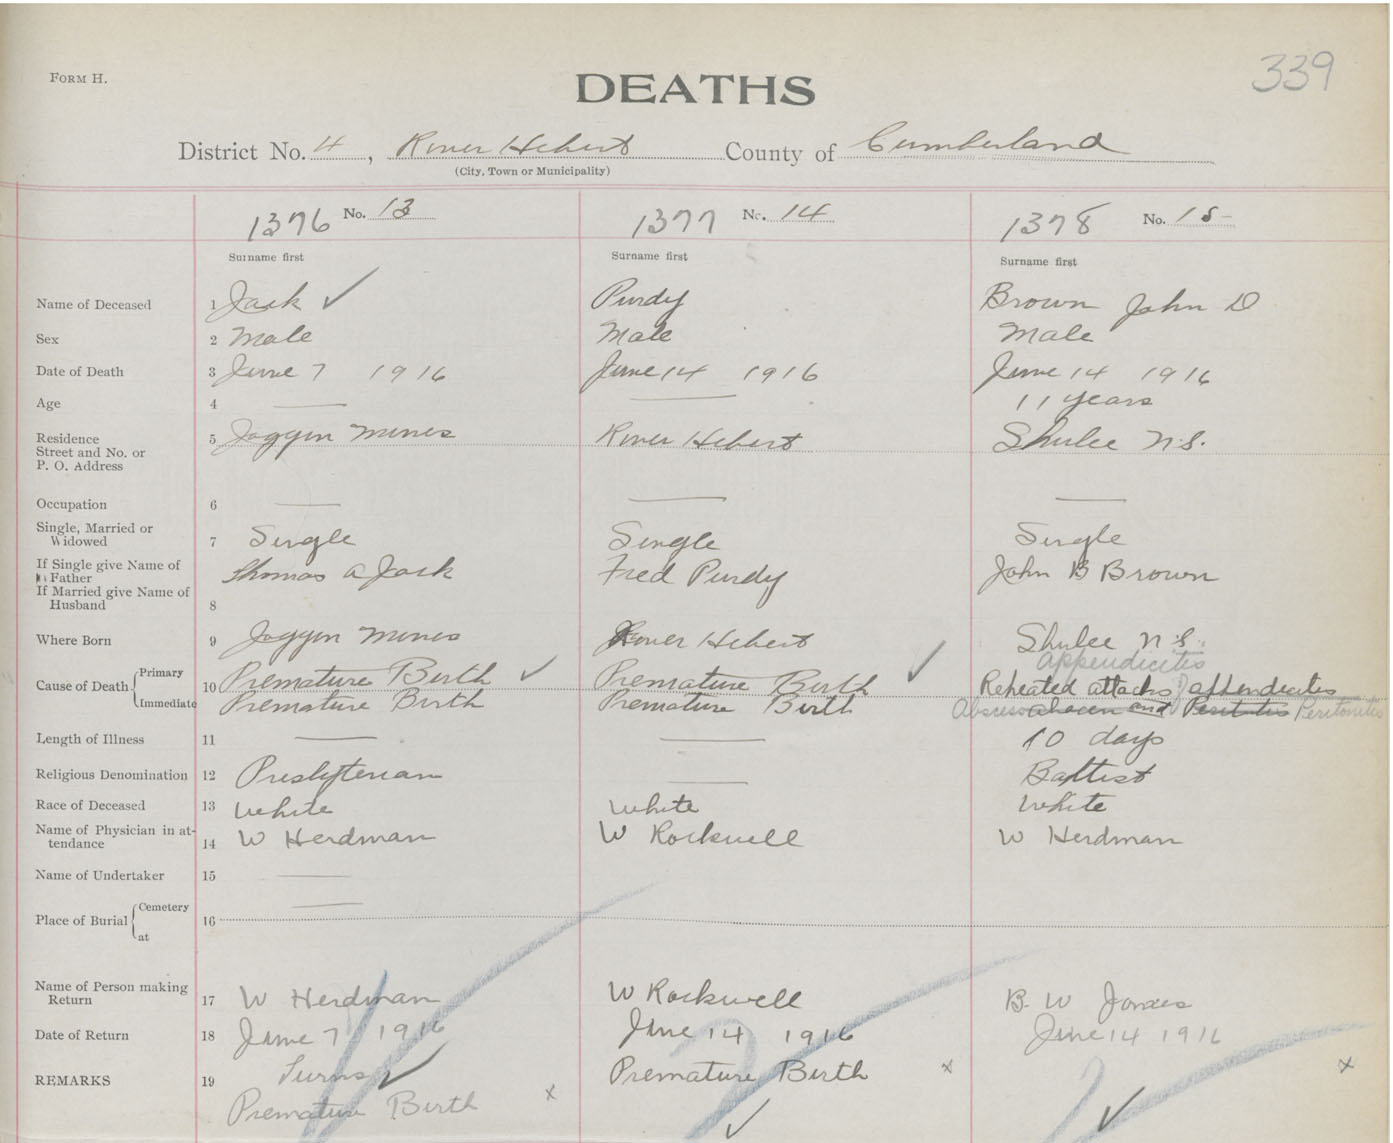 FORM H.
339
DEATHS
District No. 4, River Hebert County of Cumberland
(City, Town or Municipality)
1376 No. 13 1377 No. 14 1378 No. 15
Surname first Surname first Surname first
Name of Deceased 1 Jack ✓ Purdy Brown John D
Sex 2 Male Male Male
Date of Death 3 June 7 1916 June 14 1916 June 14 1916
Age 4 — — 11 years
Residence 5 Joggin Mines River Hebert Shulee N.S.
Street and No. or
P. O. Address
Occupation 6 — — —
Single, Married or
Widowed 7 Single Single Single
If Single give Name of
Father Thomas A Jack Fred Purdy John B Brown
If Married give Name of
Husband 8
Where Born 9 Joggin Mines River Hebert Shulee N.S.
Appendicitis
Cause of Death Primary 10 Premature Birth ✓ Premature Birth ✓ Repeated attacks of appendicitis
Immediate Premature Birth Premature Birth Abscess and Peritonitis Peritonitis
Length of Illness 11 — — 10 days
Religious Denomination 12 Presbyterian — Baptist
Race of Deceased 13 White White White
Name of Physician in at-
tendance 14 W Herdman W Rockwell W Herdman
Name of Undertaker 15 —
Place of Burial Cemetery 16 —
at
Name of Person making
Return 17 W Herdman W Rockwell B. W
Date of Return 18 June 7 1916 June 14 1916 June 14 1916
REMARKS 19 ✓ Premature Birth x x
Premature Birth x ✓ ✓